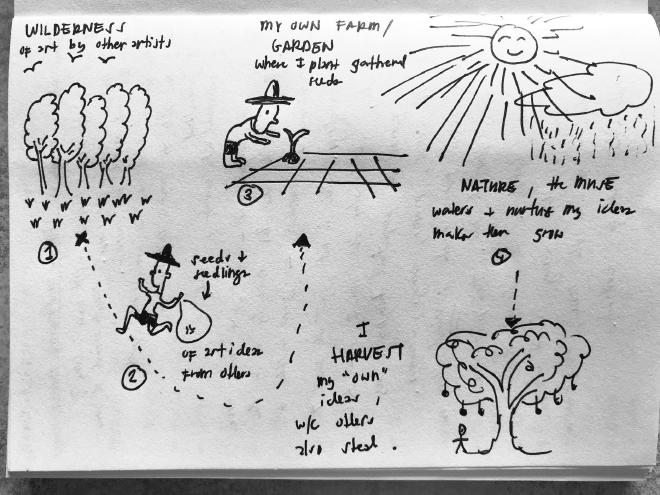 WILDERNESS
of art by other artists
MY OWN FARM/
GARDEN
where I plant gathered
seeds
3
NATURE, the MUSE
waters + nurture my ideas
makes them grow
4
1
seeds +
seedlings
of art ideas
from others
2
I
HARVEST
my "own"
ideas,
w/c others
also steal.